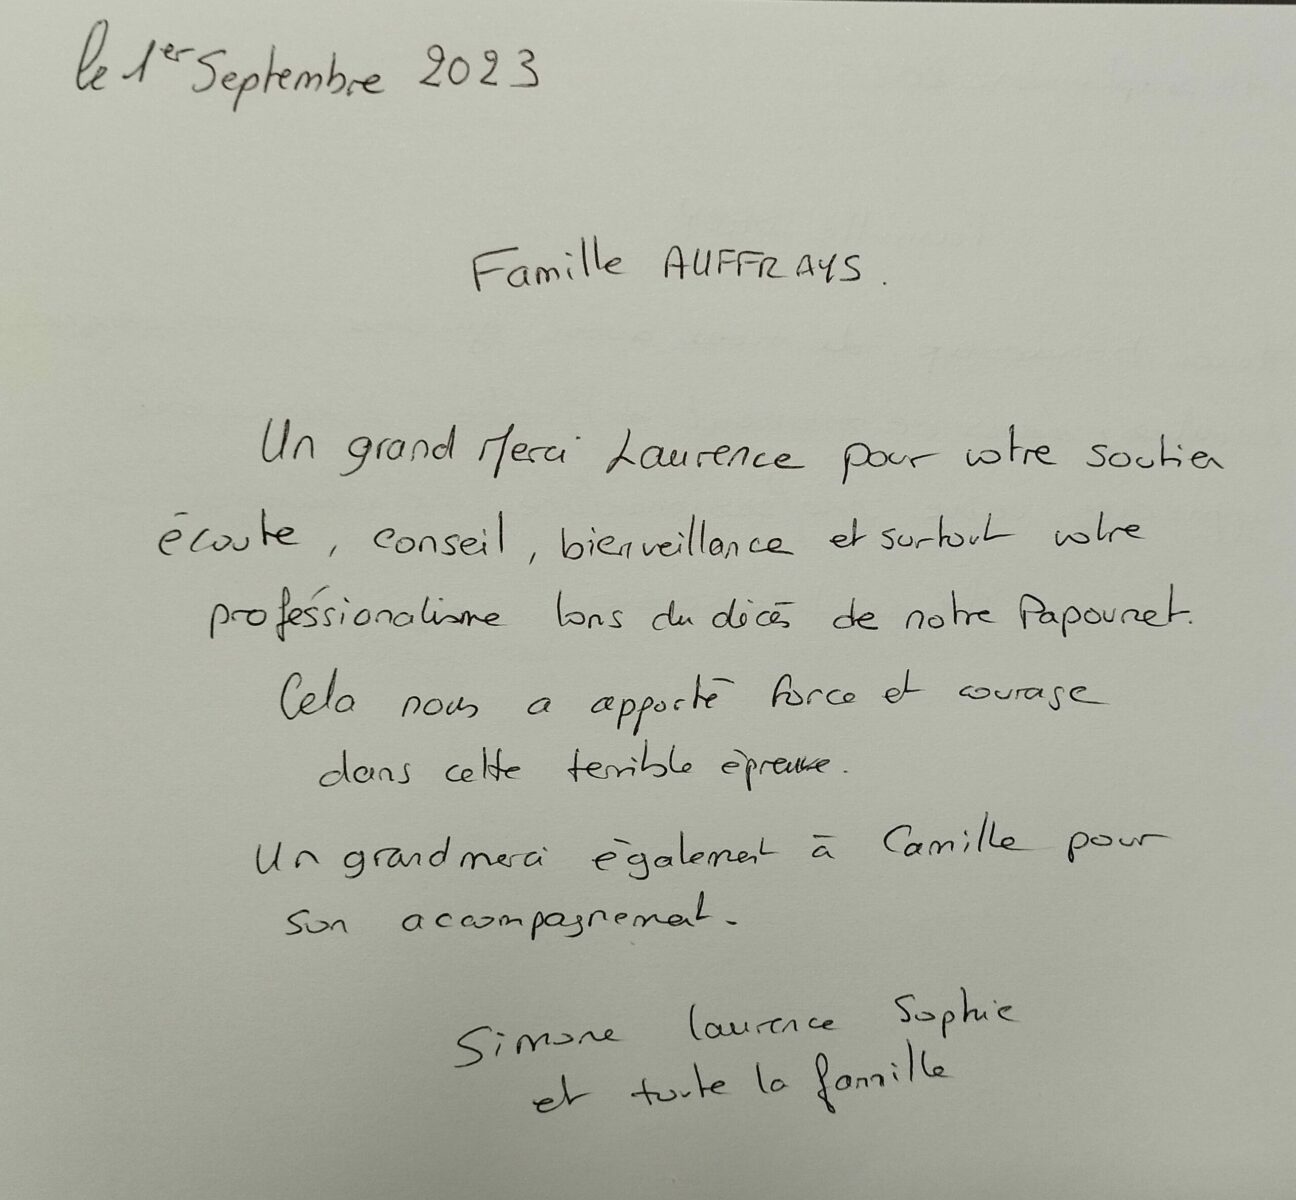 le 1er Septembre 2023
Famille AUFFRAYS.
Un grand Merci Laurence pour votre soutien
écoute, conseil, bienveillance et surtout votre
professionalisme lors du décés de notre Papounet.
Cela nous a apporté force et courage
dans cette terrible épreuve.
Un grand merci également à Camille pour
son accompagnement.
Simone Laurence Sophie
et toute la famille